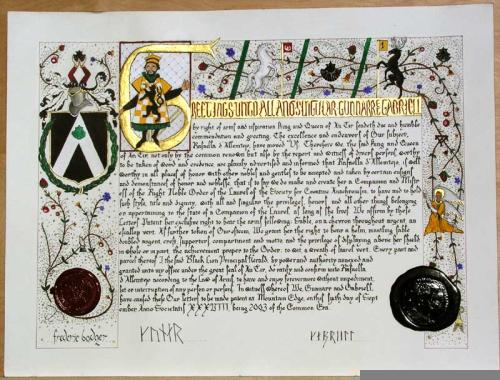 GREETINGS UNTO ALL AND SINGULAR GUNNARR E GABRIELL
by right of arms and inspiration King and Queen of An Tir sendeth due and humble
commendation and greeting. The excellence and endeavors of Our subject,
Rafaella d'Allemtejo, have moved Us. Therefore We, the said King and Queen
of An Tir not only by the common renown but also by the report and witness of diverse persons worthy
to be taken of word and credence are plainly advertised and informed that Rafaella d'Allemtejo, is well
worthy in all places of honor with other nobles and gentles to be accepted and taken by certain ensigns
and demonstrances of honor and noblesse, that is to say We do make and create her a Companion and Mistress
of the Right Noble Order of the Laurel of the Society for Creative Anachronism, to have and to hold
such style, title and dignity, with all and singular the privileges, honors, and all other things belonging
or appertaining to the state of a Companion of the Laurel, as long as she lives. We affirm by these
Letters Patent her exclusive right to bear the arms following: Sable, on a chevron throughout argent an
escallop vert. As further token of Our esteem, We grant her the right to bear a helm, mantling sable
doubled argent, crest, supporters, compartment and motto, and the privilege of displaying, above her shield
in whole or in part the achievement proper to the Order: to wit, a wreath of laurel vert. Every part and
parcel hereof I, the said Black Lion Principal Herald, by power and authority annexed and
granted unto my office under the great seal of An Tir, do ratify and confirm unto Rafaella
d'Allemtejo according to the Law of Arms, to have and enjoy forevermore without impediment,
let or interruption of any person or persons. In witness whereof We, Gunnarr and Gabriell,
have caused these Our letters to be made patent at Mountain Edge, on this sixth day of Sept
ember Anno Societatis XXXVIII, being 2003 of the Common Era.
frederic badger